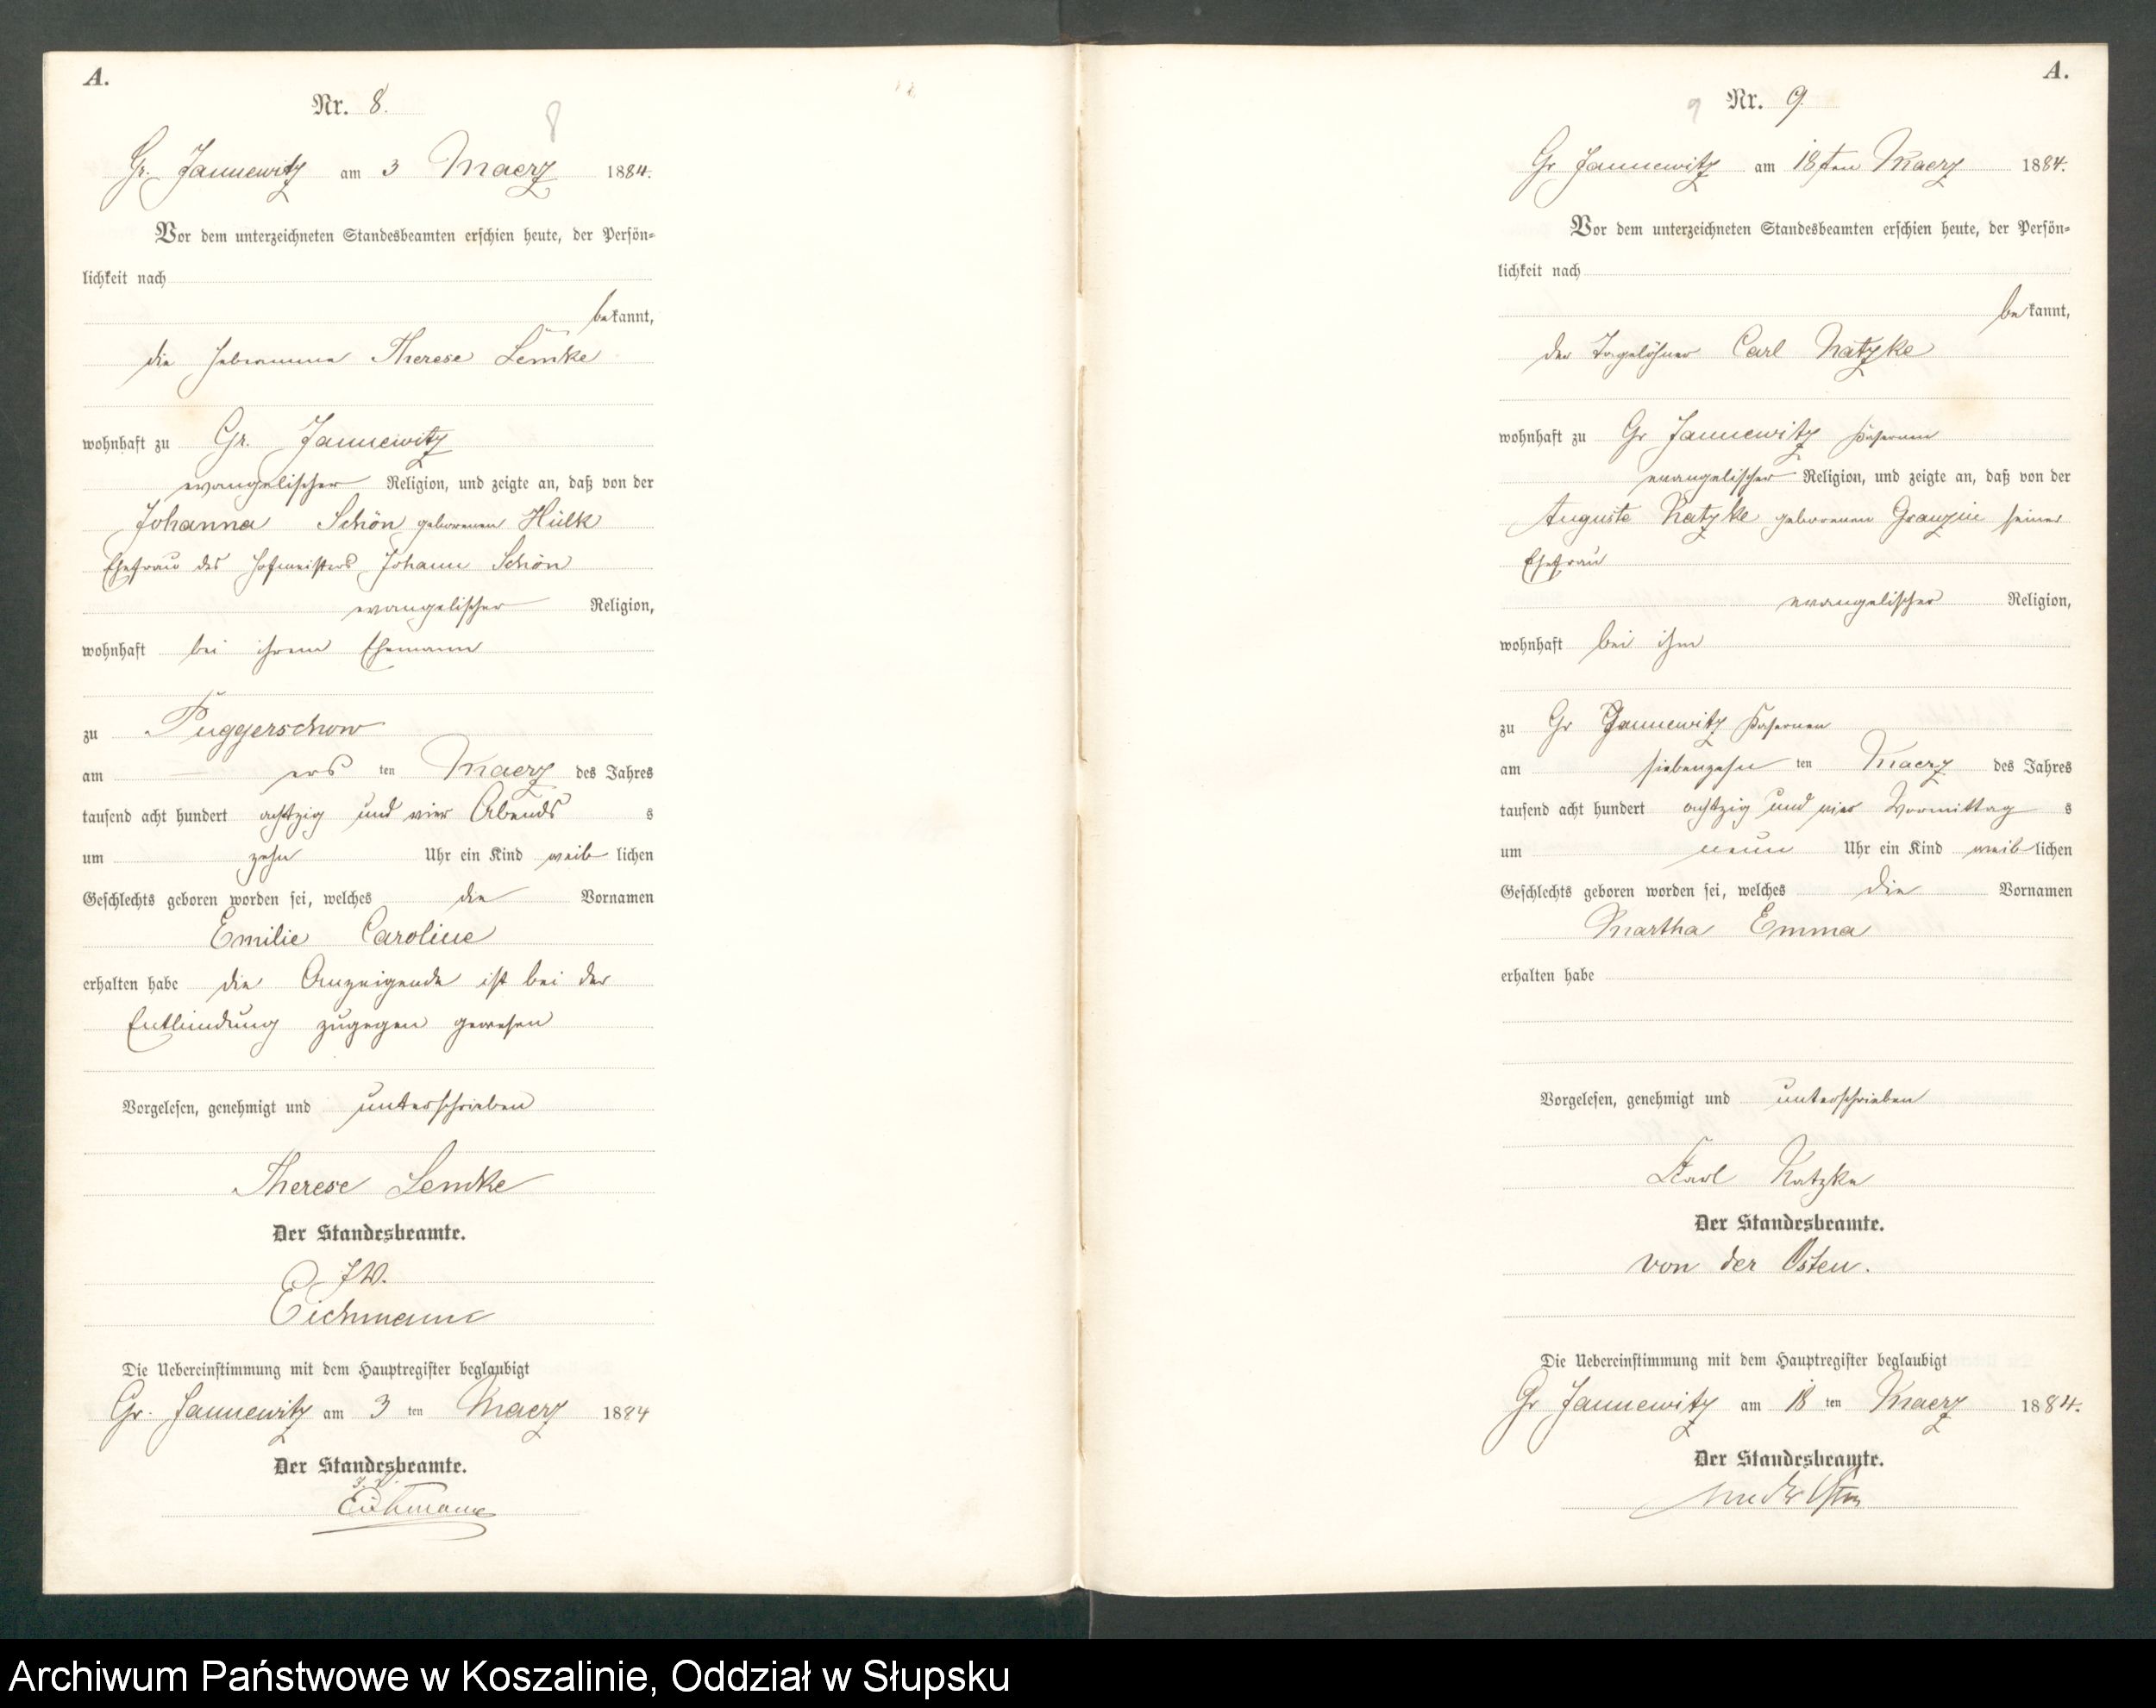 A.
Nr. 8.
8
Gr. Jannewitz am 3 Maerz 1884.
Vor dem unterzeichneten Standesbeamten erschien heute, der Persön=
lichkeit nach
bekannt,
die Hebramme Therese Lemke
wohnhaft zu Gr. Jannewitz
evangelischer Religion, und zeigte an, daß von der
Johanna Schön geborenen Hülk
Ehefrau des Hofmeisters Johann Schön
evangelischer Religion,
wohnhaft bei ihrem Ehemann
zu Puggerschow
am ers ten Maerz des Jahres
tausend acht hundert achtzig und vier Abends s
um zehn Uhr ein Kind weib lichen
Geschlechts geboren worden sei, welches die Vornamen
Emilie Caroline
erhalten habe die Anzeigende ist bei der
Entbindung zugegen gewesen
Vorgelesen, genehmigt und unterschrieben
Therese Lemke
Der Standesbeamte.
J.V.
Eichmann
Die Uebereinstimmung mit dem Hauptregister beglaubigt
Gr. Jannewitz am 3 ten Maerz 1884
Der Standesbeamte.
J.V.
Eichmann
A.
9 Nr. 9
Gr Jannewitz am 18ten Maerz 1884.
Vor dem unterzeichneten Standesbeamten erschien heute, der Persön=
lichkeit nach
bekannt,
der Tagelöhner Carl Natzke
wohnhaft zu Gr Jannewitz Kasernen
evangelischer Religion, und zeigte an, daß von der
Auguste Natzke geborenen Granzin seiner
Ehefrau
evangelischer Religion,
wohnhaft bei ihm
zu Gr Jannewitz Kasernen
am siebenzehn ten Maerz des Jahres
tausend acht hundert achtzig und vier Vormittag s
um neun Uhr ein Kind weib lichen
Geschlechts geboren worden sei, welches die Vornamen
Martha Emma
erhalten habe
Vorgelesen, genehmigt und unterschrieben
Karl Natzke
Der Standesbeamte.
von der Osten.
Die Uebereinstimmung mit dem Hauptregister beglaubigt
Gr Jannewitz am 18 ten Maerz 1884.
Der Standesbeamte.
von der Osten
Archiwum Państwowe w Koszalinie, Oddział w Słupsku